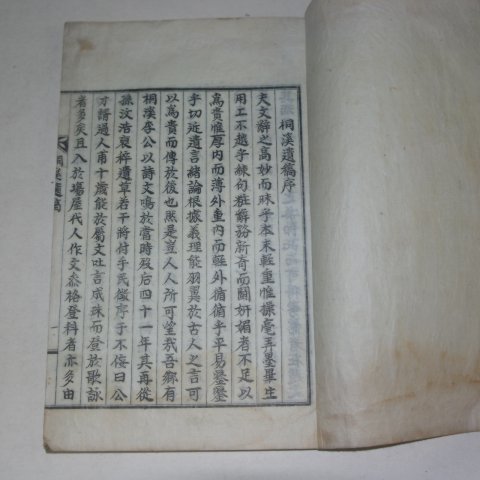 桐溪遺稿序
夫文辭之高妙而昧乎本末輕重惟操毫弄墨畢生
用工不越乎練句粧辭務新奇而鬪妍媚者不足以
爲貴惟厚内而薄外重内而輕外循循乎平易鑿鑿
乎切近遺言緖論根據義理能羽翼於古人之言可
以爲貴而傳於後也然是豈人人所可望哉吾鄕有
桐溪李公以詩文鳴於當時歿後四十一年其再從
孫汶浩裒稡遺草若干將付手民徵序于不侫曰公
才諝過人甫十歲能於屬文吐言成珠而登於歌詠
者多矣且入於場屋代人作文叅格登科者亦多由
桐溪遺稿
一